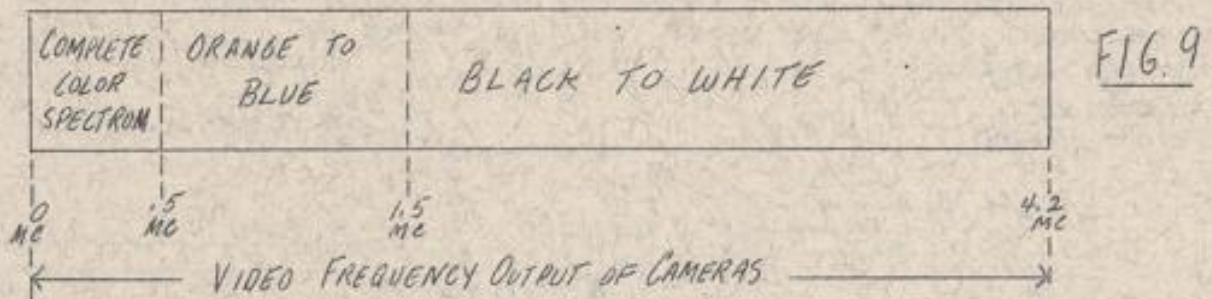 COMPLETE COLOR SPECTROM
ORANGE TO BLUE
BLACK TO WHITE
FIG. 9
0 MC
.5 MC
1.5 MC
4.2 MC
VIDEO FREQUENCY OUTPUT OF CAMERAS